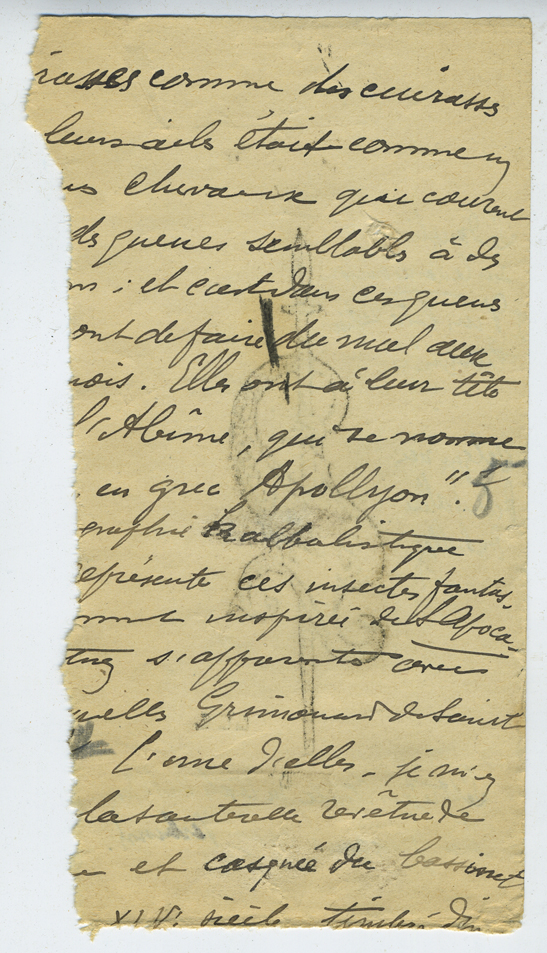 comme des cuirasses
leurs ailes était comme
chevaux qui courent
des queues semblables à des
; et c'est dans ces queues
ont de faire du mal aux
mois. Elles ont à leur tête
l'Abîme, qui se nomme
, en grec Apollyon".
graphie Kabbalistique
représente ces insectes fantas-
inspirés de l'Apoca-
s'apparente avec
Grimouard de Saint
L'une d'elles, je
la sauterelle revêtue de
et casquée du bassinet
XIVe siècle timbré d'un